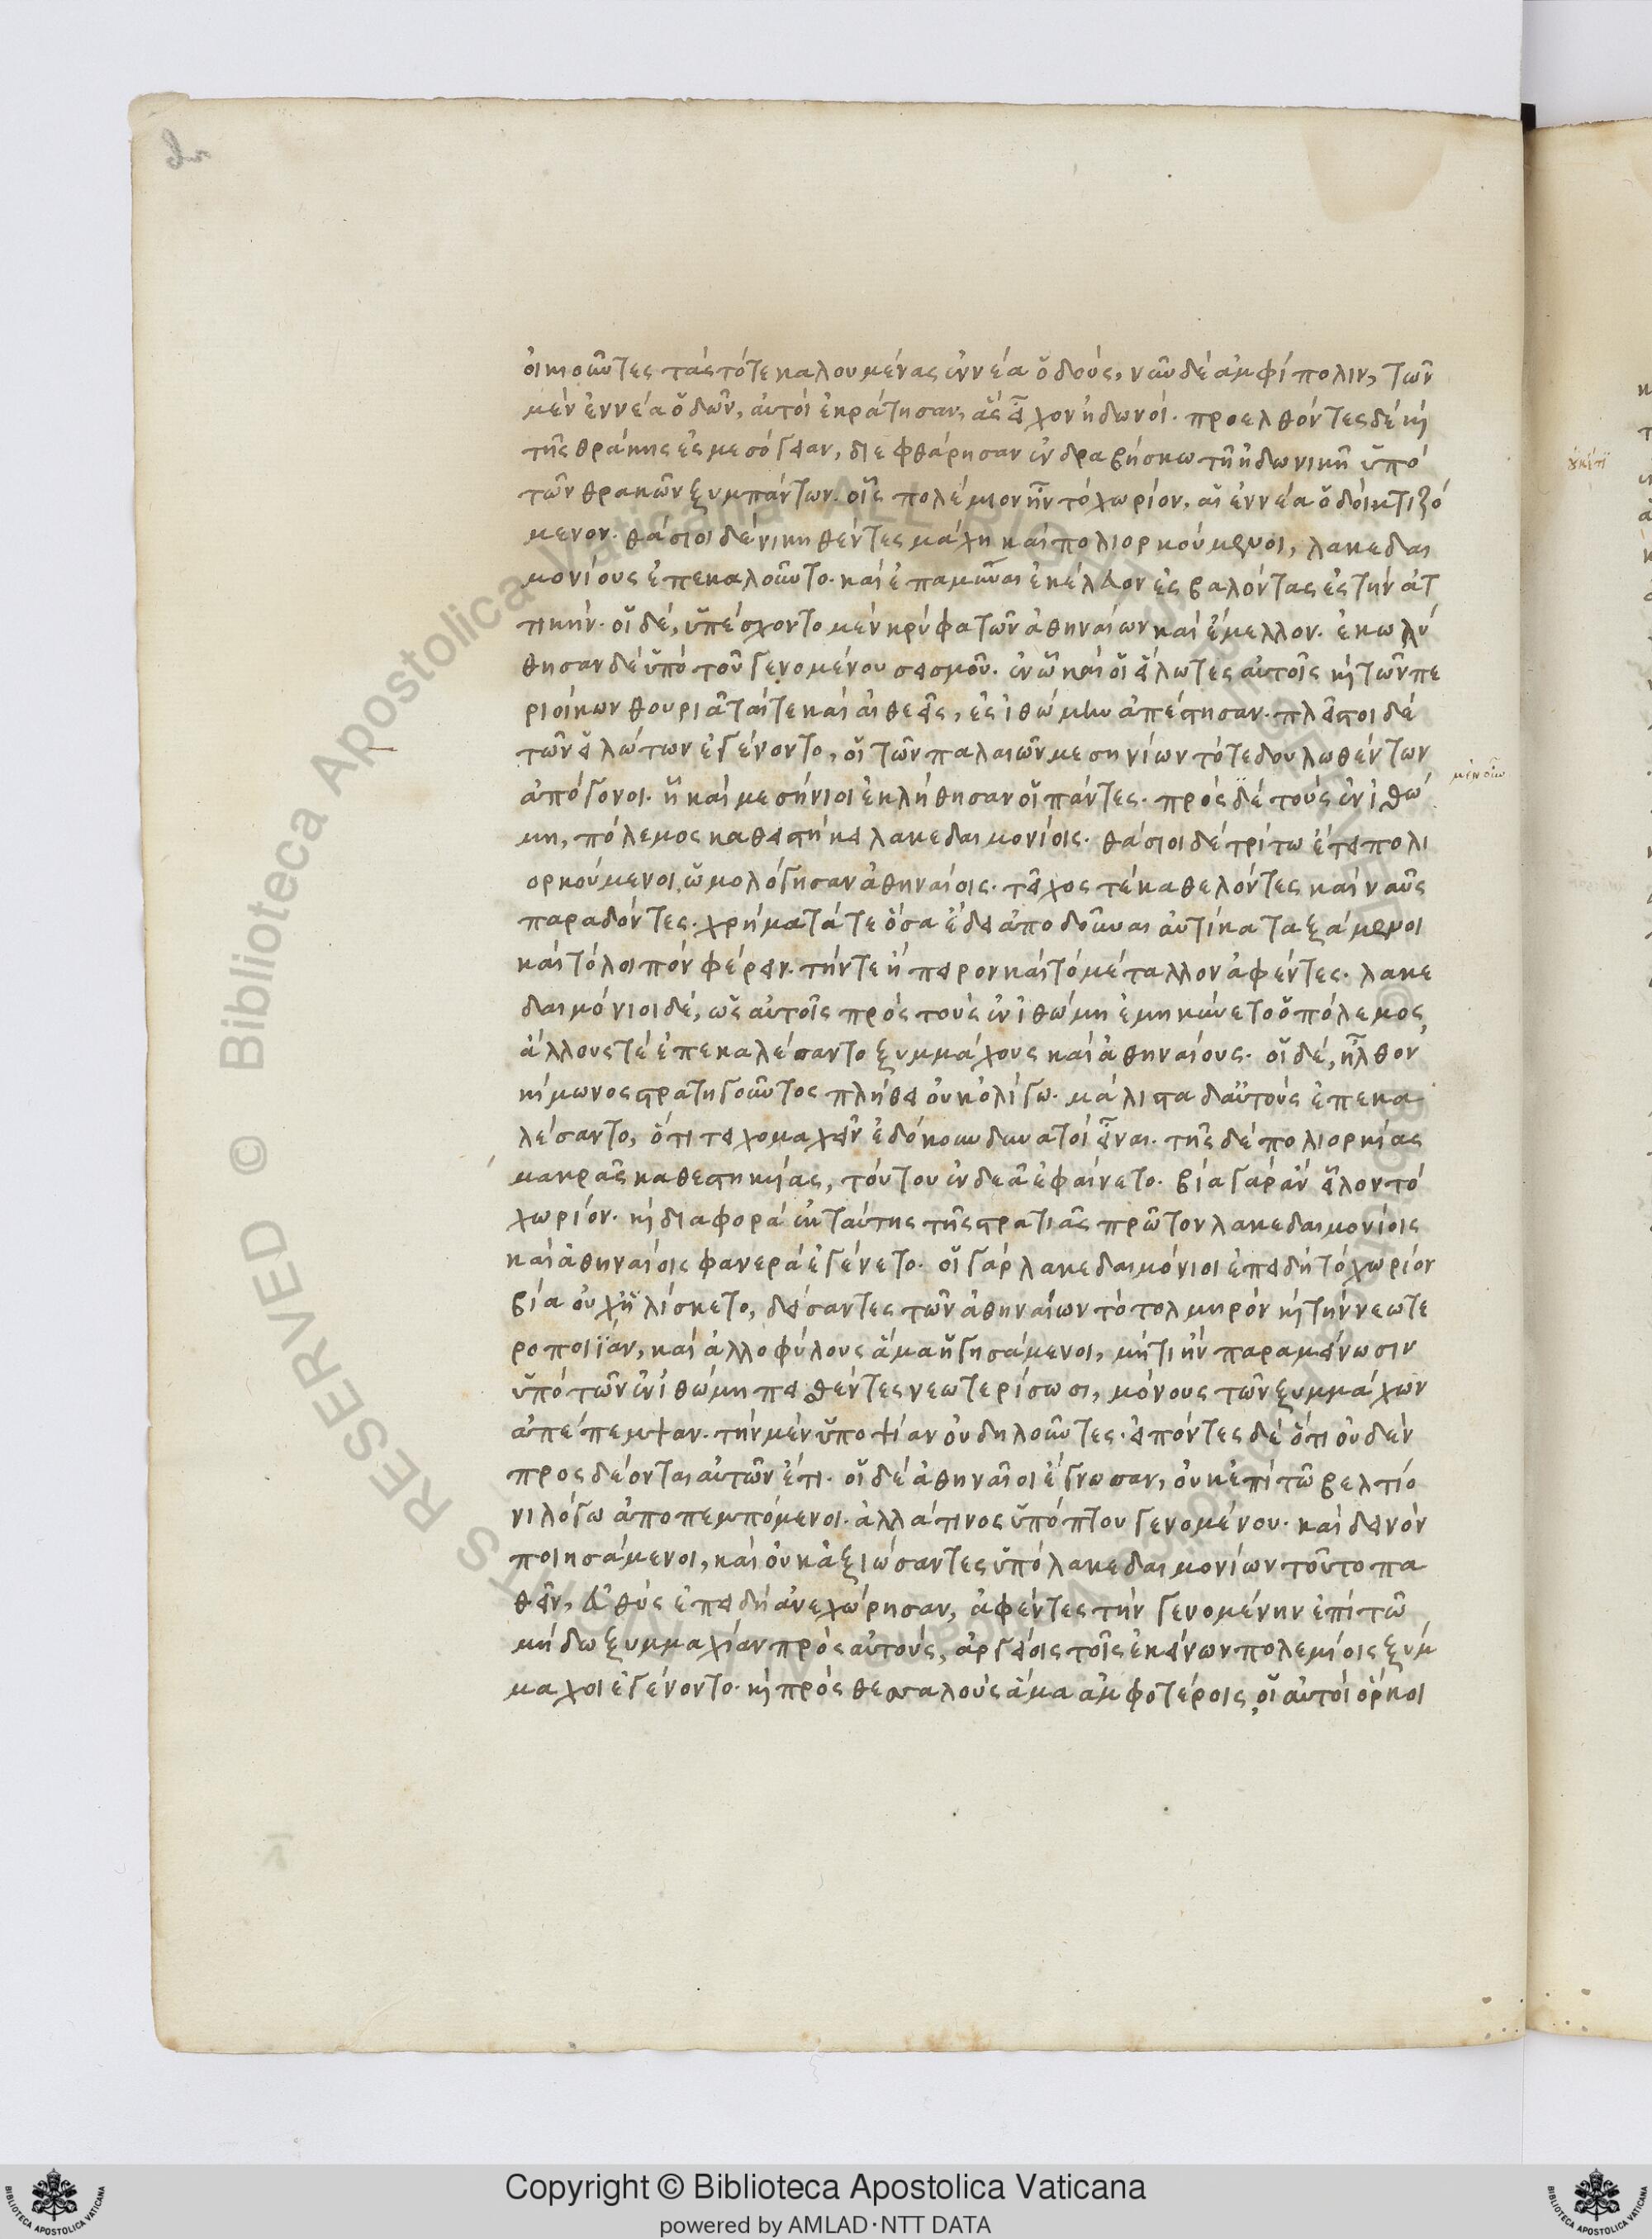 οἰκιοῦντες τὰς τότε καλουμένας ἐννέα ὁδοὺς, νῦν δὲ ἀμφίπολιν, τῶν
μὲν ἐννέα ὁδῶν, αὐτοὶ ἐκράτησαν, ἃς εἶχον ἠδωνοί. προελθόντες δὲ κὶ
τῆς θράκης ἐς μεσόγειαν, διεφθάρησαν ἐν δραβήσκω τῆ ἠδωνικῆ ὑπὸ
τῶν θρακῶν ξυμπάντων. οἷς πολέμιον ἦν τὸ χωρίον, αἱ ἐννέα ὁδοὶ κτιζό
μενον. θάσιοι δὲ νικηθέντες μάχη καὶ πολιορκούμενοι, λακεδαι
μονίους ἐπεκαλοῦντο. καὶ ἐπαμῦναι ἐκέλευον ἐσβαλόντας ἐς τὴν ἀτ
τικήν. οἱ δὲ, ὑπέσχοντο μὲν κρύφα τῶν ἀθηναίων καὶ ἔμελλον. ἐκωλύ
θησαν δὲ ὑπὸ τοῦ γενομένου σεισμοῦ. ἐν ᾧ καὶ οἱ εἵλωτες αὐτοῖς κὶ τῶν πε
ριοίκων θουριᾶταί τε καὶ αἰθεεῖς, ἐς ἰθώμην ἀπέστησαν. πλεῖστοι δὲ
τῶν εἱλώτων ἐγένοντο, οἱ τῶν παλαιῶν μεσηνίων τότε δουλωθέντων
ἀπόγονοι. ᾗ καὶ μεσήνιοι ἐκλήθησαν οἱ πάντες. πρὸς δὲ τοὺς ἐν ἰθώ
μη, πόλεμος καθειστήκει λακεδαιμονίοις. θάσιοι δὲ τρίτω ἔτει πολι
ορκούμενοι, ὡμολόγησαν ἀθηναίοις. τεῖχος τὲ καθελόντες καὶ ναῦς
παραδόντες. χρήματά τε ὅσα ἔδει ἀποδοῦναι αὐτίκα ταξάμενοι
καὶ τὸ λοιπὸν φέρειν. τήν τε ἤπειρον καὶ τὸ μέταλλον ἀφέντες. λακε
δαιμόνιοι δὲ, ὡς αὐτοῖς πρὸς τοὺς ἐν ἰθώμη ἐμηκύνετο ὁ πόλεμος,
ἄλλους τὲ ἐπεκαλέσαντο ξυμμάχους καὶ ἀθηναίους. οἱ δὲ, ἦλθον
κίμωνος στρατηγοῦντος πλήθει οὐκ ὀλίγω. μάλιστα δ αὐτοὺς ἐπεκα
λέσαντο, ὅτι τειχομαχεῖν ἐδόκουν δυνατοὶ εἶναι. τῆς δὲ πολιορκίας
μακρᾶς καθεστηκυίας, τούτου ἐνδεᾶ ἐφαίνετο. βία γὰρ ἂν εἷλον τὸ
χωρίον. κὶ διαφορὰ ἐκ ταύτης τῆς στρατιᾶς πρῶτον λακεδαιμονίοις
καὶ ἀθηναίοις φανερὰ ἐγένετο. οἱ γὰρ λακεδαιμόνιοι ἐπειδὴ τὸ χωρίον
βία οὐχ ἡλίσκετο, δείσαντες τῶν ἀθηναίων τὸ τολμηρὸν κὶ τὴν νεωτε
ροποιίαν, καὶ ἀλλοφύλους ἅμα ἡγησάμενοι, μή τι ἢν παραμείνωσιν
ὑπὸ τῶν ἐν ἰθώμη πεισθέντες νεωτερίσωσι, μόνους τῶν ξυμμάχων
ἀπέπεμψαν. τὴν μὲν ὑποψίαν οὐ δηλοῦντες. εἰπόντες δὲ ὅτι οὐδὲν
προσδέονται αὐτῶν ἔτι. οἱ δὲ ἀθηναῖοι ἔγνωσαν, οὐκ ἐπὶ τῶ βελτίο
νι λόγω ἀποπεμπόμενοι. ἀλλά τινος ὑπόπτου γενομένου. καὶ δεινὸν
ποιησάμενοι, καὶ οὐκ ἀξιώσαντες ὑπὸ λακεδαιμονίων τοῦτο πα
θεῖν, εὐθὺς ἐπειδὴ ἀνεχώρησαν, ἀφέντες τὴν γενομένην ἐπὶ τῶ
μήδω ξυμμαχίαν πρὸς αὐτοὺς, ἀργείοις τοῖς ἐκείνων πολεμίοις ξύμ
μαχοι ἐγένοντο. κὶ πρὸς θεσσαλοὺς ἅμα ἀμφοτέροις, οἱ αὐτοὶ ὅρκοι
Copyright © Biblioteca Apostolica Vaticana
powered by AMLAD·NTT DATA